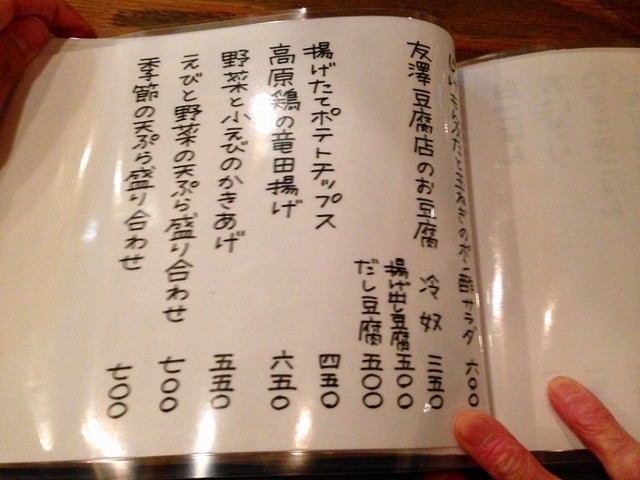 しゃぶたと玉ねぎのポン酢サラダ 六〇〇
友澤豆腐店のお豆腐 冷奴 三五〇
揚げ出し豆腐 五〇〇
だし豆腐 五〇〇
揚げたてポテトチップス 四五〇
高原鶏の竜田揚げ 六五〇
野菜と小えびのかきあげ 五五〇
えびと野菜の天ぷら盛り合わせ 七〇〇
季節の天ぷら盛り合わせ 七〇〇